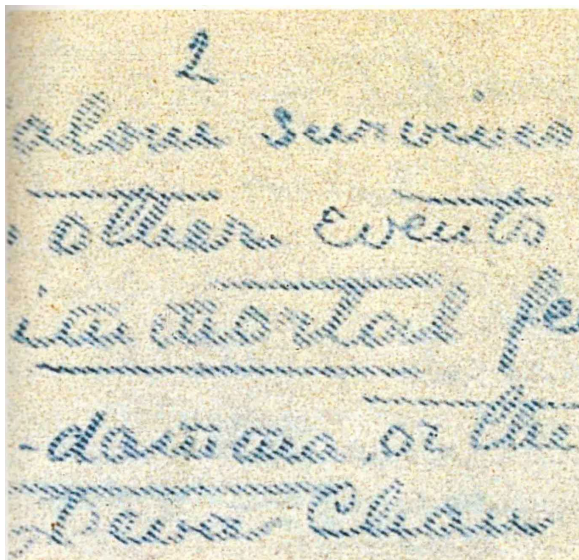 2
alous survives
other events
immortal fe
-damma, or the
Deva Chan